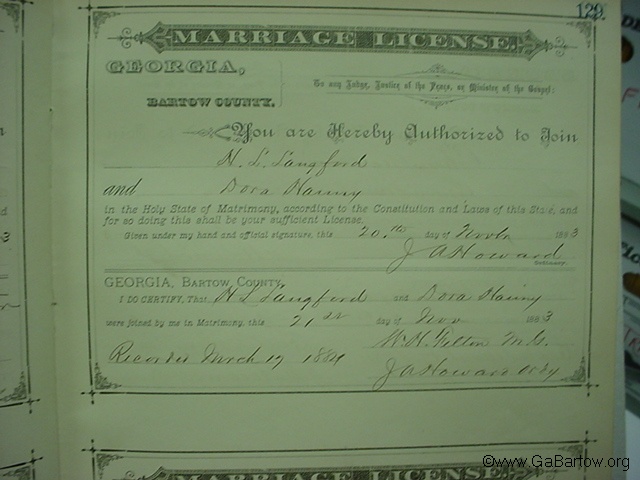 129.
MARRIAGE LICENSE.
GEORGIA,
BARTOW COUNTY.
To any Judge, Justice of the Peace, or Minister of the Gospel:
You are Hereby Authorized to Join
H. L. Langford
and Dora
in the Holy State of Matrimony, according to the Constitution and Laws of this State, and
for so doing this shall be your sufficient License.
Given under my hand and official signature, this 20th day of 1883
J A Howard
Ordinary.
GEORGIA, BARTOW COUNTY.
I DO CERTIFY, That H L Langford and Dora
were joined by me in Matrimony, this 21st day of Nov 1883
W. H. Felton M.G.
Recorded March 1884
J A Howard Ordy
MARRIAGE LICENSE.
©www.GaBartow.org